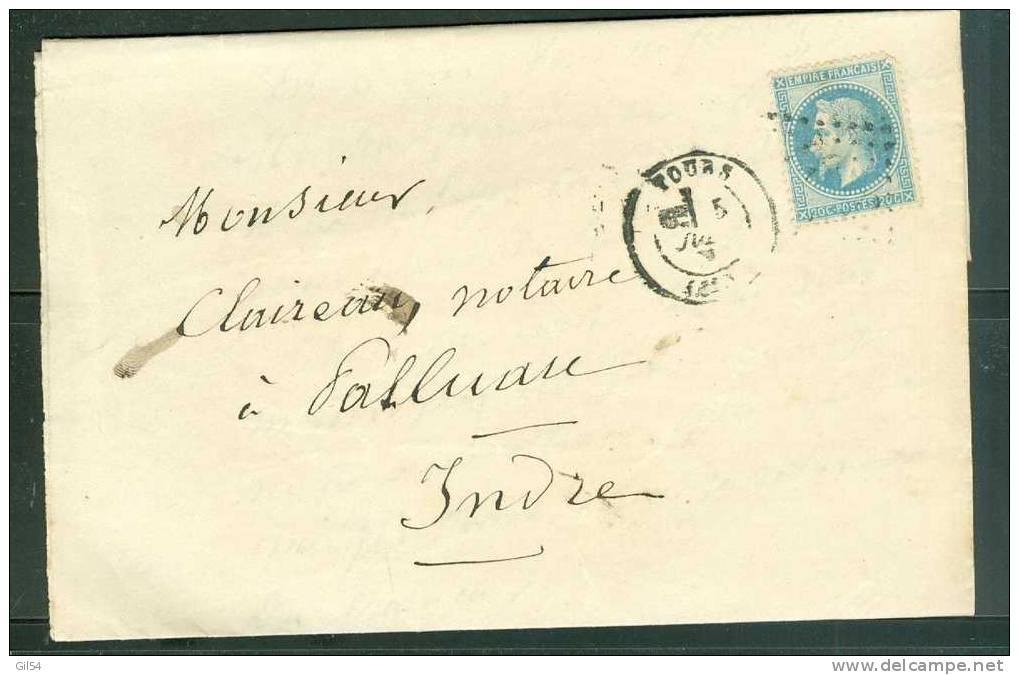 EMPIRE FRANÇAIS
20C-POSTES-20C
TOURS
5
Monsieur
Claireau, notaire
à Palluau
Indre
Gil54
www.delcampe.net